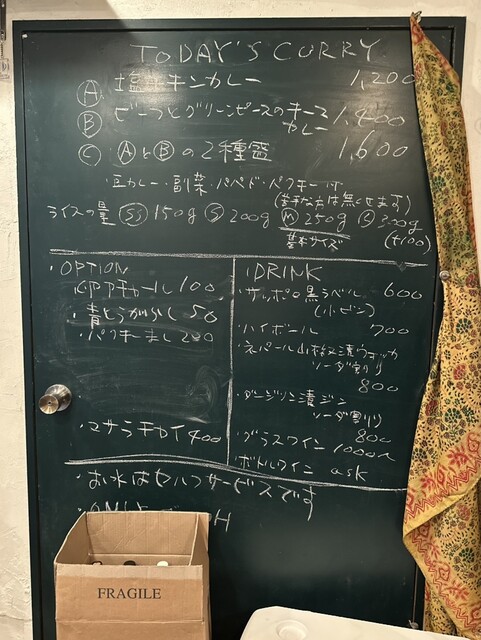 TODAY'S CURRY
Ⓐ 塩チキンカレー 1,200
Ⓑ ビーフとグリーンピースのキーマカレー 1,400
Ⓒ ⒶとⒷの2種盛 1,600
・豆カレー・副菜・パパド・パクチー付
(苦手な方は無くせます)
ライスの量 SS 150g S 200g M 250g L 300g
基本サイズ (+100)
・OPTION
アチャール 100
・青とうがらし 50
・パクチーまし 200
・マサラチャイ 400
・DRINK
・サッポロ黒ラベル 600
(小ビン)
・ハイボール 700
・ネパール山椒漬ウォッカ
ソーダ割り
800
・ダージリン漬ジン
ソーダ割り)
800
・グラスワイン 1000〜
・ボトルワイン ask
・お水はセルフサービスです
・ONLY H
FRAGILE